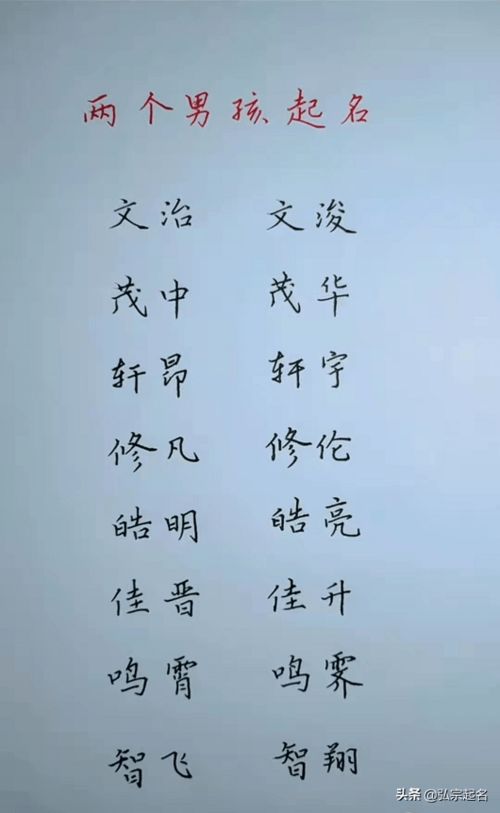 两个男孩起名
文治 文浚
茂中 茂华
轩昂 轩宇
修凡 修伦
皓明 皓亮
佳晋 佳升
鸣霄 鸣霁
智飞 智翔
头条 @弘宗起名